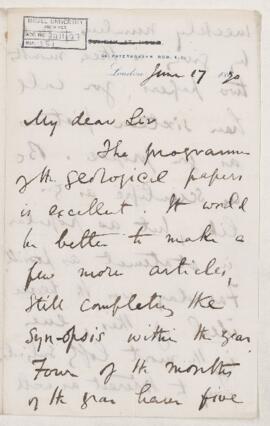 McGILL UNIVERSITY
ACC. NO.
REF.
BEDFORD ROW, W.C.
London, June 17 1890
My dear Sir
The programme
of the geological papers
is excellent. It would
be better to make a
few more articles,
still completing the
Synopsis within the year
Four of the months
of the year have five